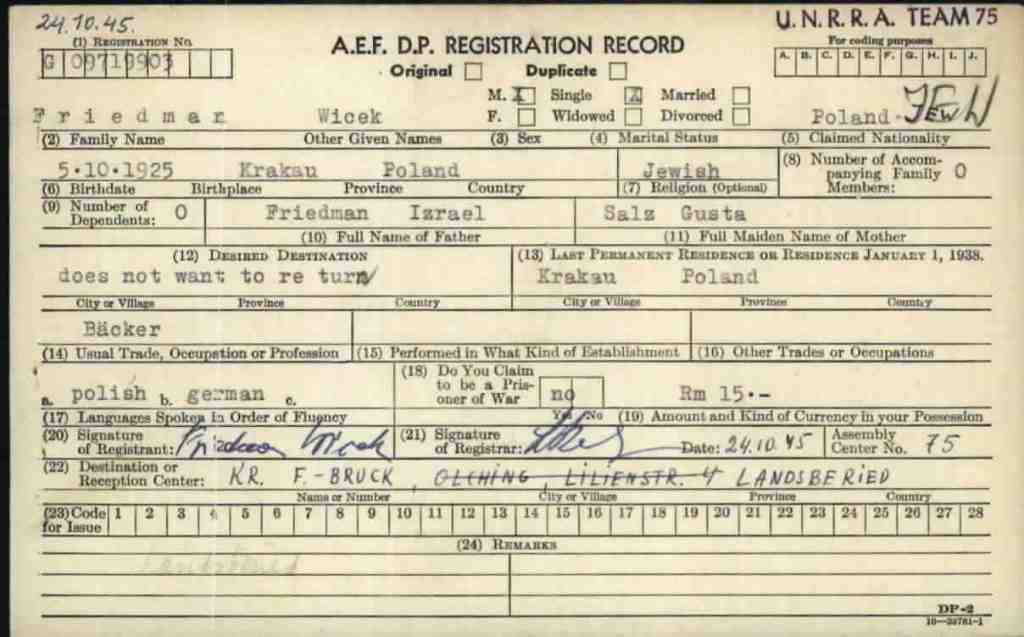 24.10.45.
U.N.R.R.A. TEAM 75
(1) REGISTRATION NO.
G 09719903
A.E.F. D.P. REGISTRATION RECORD
Original Duplicate
For coding purposes
A. B. C. D. E. F. G. H. I. J.
M. X Single X Married
Friedmar Wicek F. Widowed Divorced Poland. JEW
(2) Family Name Other Given Names (3) Sex (4) Marital Status (5) Claimed Nationality
5.10.1925 Krakau Poland Jewish (8) Number of Accompanying Family Members: 0
(6) Birthdate Birthplace Province Country (7) Religion (Optional)
(9) Number of Dependents: 0 Friedman Izrael Salz Gusta
(10) Full Name of Father (11) Full Maiden Name of Mother
(12) DESIRED DESTINATION (13) LAST PERMANENT RESIDENCE OR RESIDENCE JANUARY 1, 1938.
does not want to re turn Krakau Poland
City or Village Province Country City or Village Province Country
Bäcker
(14) Usual Trade, Occupation or Profession (15) Performed in What Kind of Establishment (16) Other Trades or Occupations
a. polish b. german c. (18) Do You Claim to be a Prisoner of War no Rm 15.-
(17) Languages Spoken in Order of Fluency Yes No (19) Amount and Kind of Currency in your Possession
(20) Signature of Registrant: Wicek (21) Signature of Registrar: Date: 24.10.45 Assembly Center No. 75
(22) Destination or Reception Center: KR. F.-BRUCK, OLCHING, LILIENSTR. 4 LANDSBERIED
Name or Number City or Village Province Country
(23) Code for Issue 1 2 3 4 5 6 7 8 9 10 11 12 13 14 15 16 17 18 19 20 21 22 23 24 25 26 27 28
(24) REMARKS
DP-2
16—39781-1